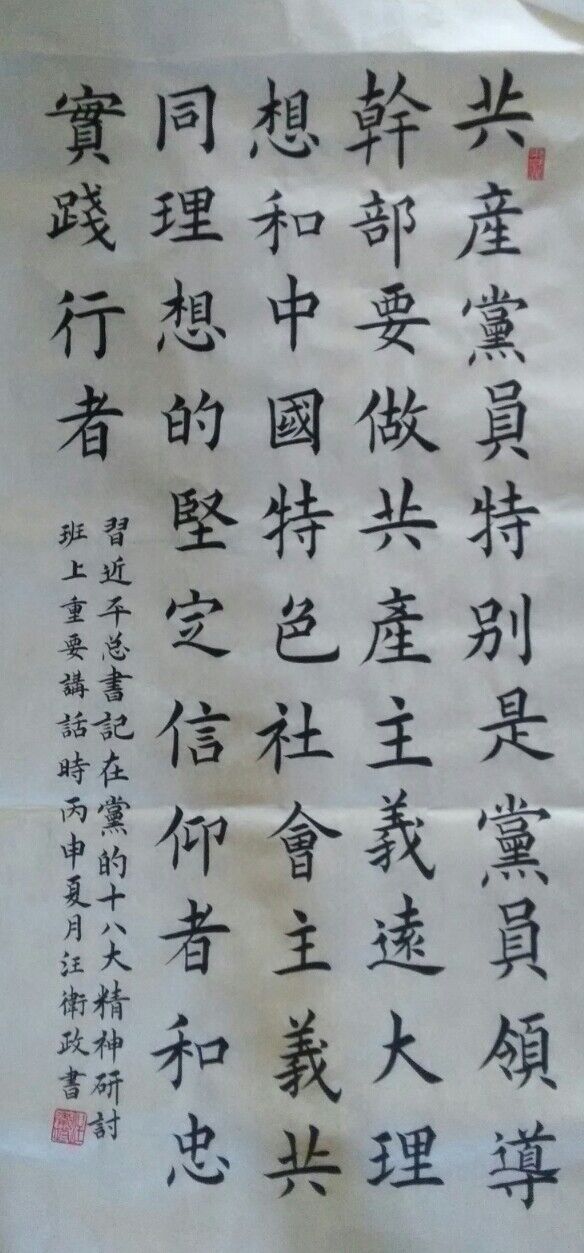 共産黨員特別是黨員領導
幹部要做共產主義遠大理
想和中國特色社會主義共
同理想的堅定信仰者和忠
實踐行者
習近平总書記在黨的十八大精神研討
班上重要講話時丙申夏月汪衛政書